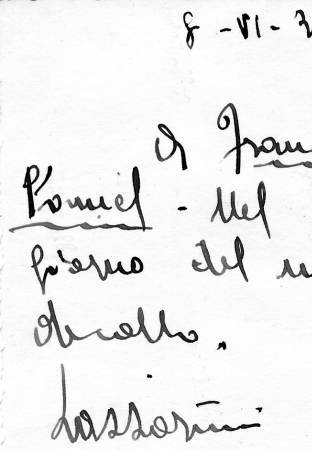 8 - VI - 3
di Fran
Pomiel - Nel
giorno del
decollo.
Lazzarini